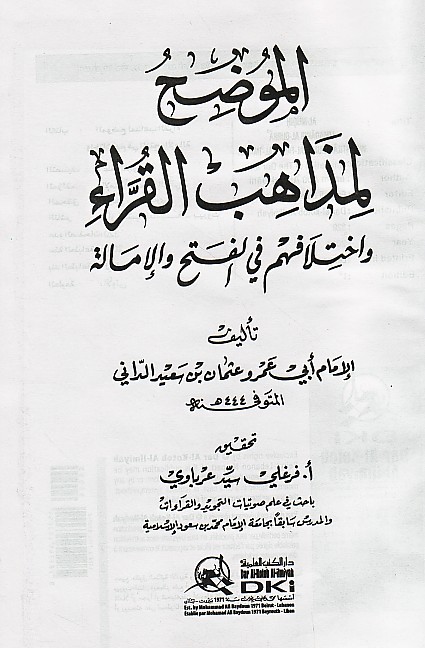 الموُضِحُ
لِمذَاهِبْ القُرَّاءِ
واختِلَافِهِمْ في الفَتحِ والإمَالة
تأليف
الإمَام أَبي عَمْرو عثمان بن سَعيد الدَّاني
المتوفى ٤٤٤هـنة
تحقيق
أ. فرغلي سيِّد عرباوي
باحث في علم صوتيات التجويد والقراءات
والمدرس سَابقاً بجامعة الإمام محمد بن سعود الإسلامية
دار الكتب العلمية
Dar Al-Kotob Al-ilmiyah
DKi
أسسها محمد علي بيضون سنة 1971 بيروت - لبنان
Est. by Mohammad Ali Baydoun 1971 Beirut - Lebanon
Établie par Mohamad Ali Baydoun 1971 Beyrouth - Liban